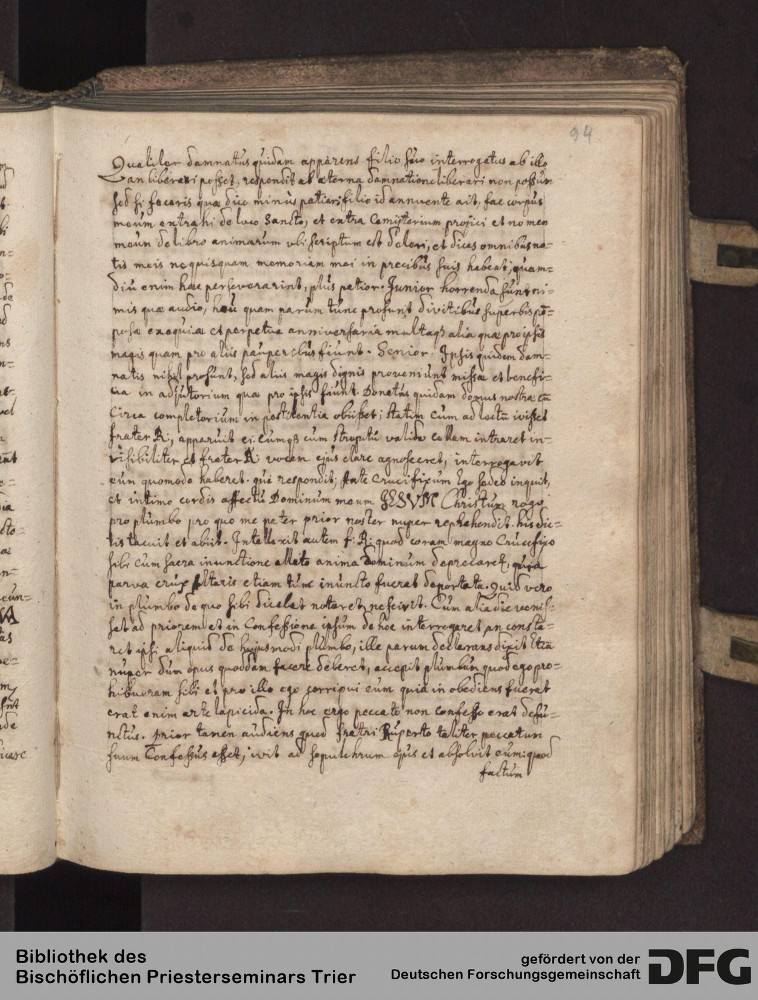 94
Qualiter damnatus quidam apparens filio suo interrogatus ab illo
an liberari posset, respondit ab aeterna damnatione liberari non possum
sed si feceris quae dico minus patiar, filio id annuente ait, fac corpus
meum extrahi de loco Sancto, et extra Caemiterium projici et nomen
meum de libro animarum ubi scriptum est deleri, et dicas omnibus na=
tis meis ne quisquam memoriam mei in precibus suis habeat, quam=
diu enim haec perseverarint, plus patior. Junior horrenda sunt ni=
mis quae audio, heu quam parum tunc prosunt divitibus superbis po=
posae exequiae et perpetua anniversaria multaq3 alia quae pro ipsis
magis quam pro aliis pauperibus fiunt. Senior. Ipsis quidem dam=
natis nihil prosunt, sed aliis magis dignis proveniunt missae et benefi=
cia in adjutorium quae pro ipsis fiunt. Donatus quidam domus nostrae cu
circa completorium in pestilentia obiisset; statim cum ad lectu ivisset
frater R; apparuit ei. Cumq3 cum strepitu valido cellam intraret in=
visibiliter et frater R: vocem ejus clare agnosceret, interrogavit
eum quomodo haberet. qui respondit, Ante Crucifixum Ego sedeo inquit,
et intimo cordis affectu Dominum meum JESUM Christum rogo
pro plumbo pro quo me pater prior noster nuper reprehendit. his dic=
tis tacuit et abiit. Intellexit autem f. R: quod coram magno Crucifixo
sibi cum sacra inunctione allato anima Dominum deprecaret, quia
parva crux Altaris etiam tunc inuncto fuerat deportata. Quid vero
in plumbo de quo sibi dicebat notaret, nescivit. Cum alia die venis=
set ad priorem et in Confessione ipsum de hoc interrogaret an consta=
ret ipsi aliquid de hujusmodi plumbo, ille parum declarans dixit Etia
nuper dum opus quoddam facere deberet, accepit plumbum quod ego pro=
hibueram sibi et pro illo ego corripui eum quia inobediens fuerat
erat enim arte lapicida. In hoc ergo peccato non confesso erat defu=
nctus. prior tamen audiens quod fratri Ruperto taliter peccatum
suum Confessus esset, ivit ad sepulchrum ejus et absolvit eum: quod
factum
Bibliothek des
Bischöflichen Priesterseminars Trier
gefördert von der
Deutschen Forschungsgemeinschaft
DFG